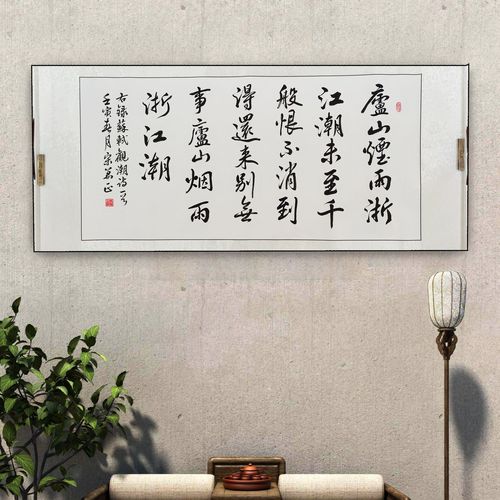 廬山煙雨浙
江潮未至千
般恨不消到
得還来别無
事廬山烟雨
浙江潮
右録蘇軾觀潮詩一首
壬寅春月宗益正